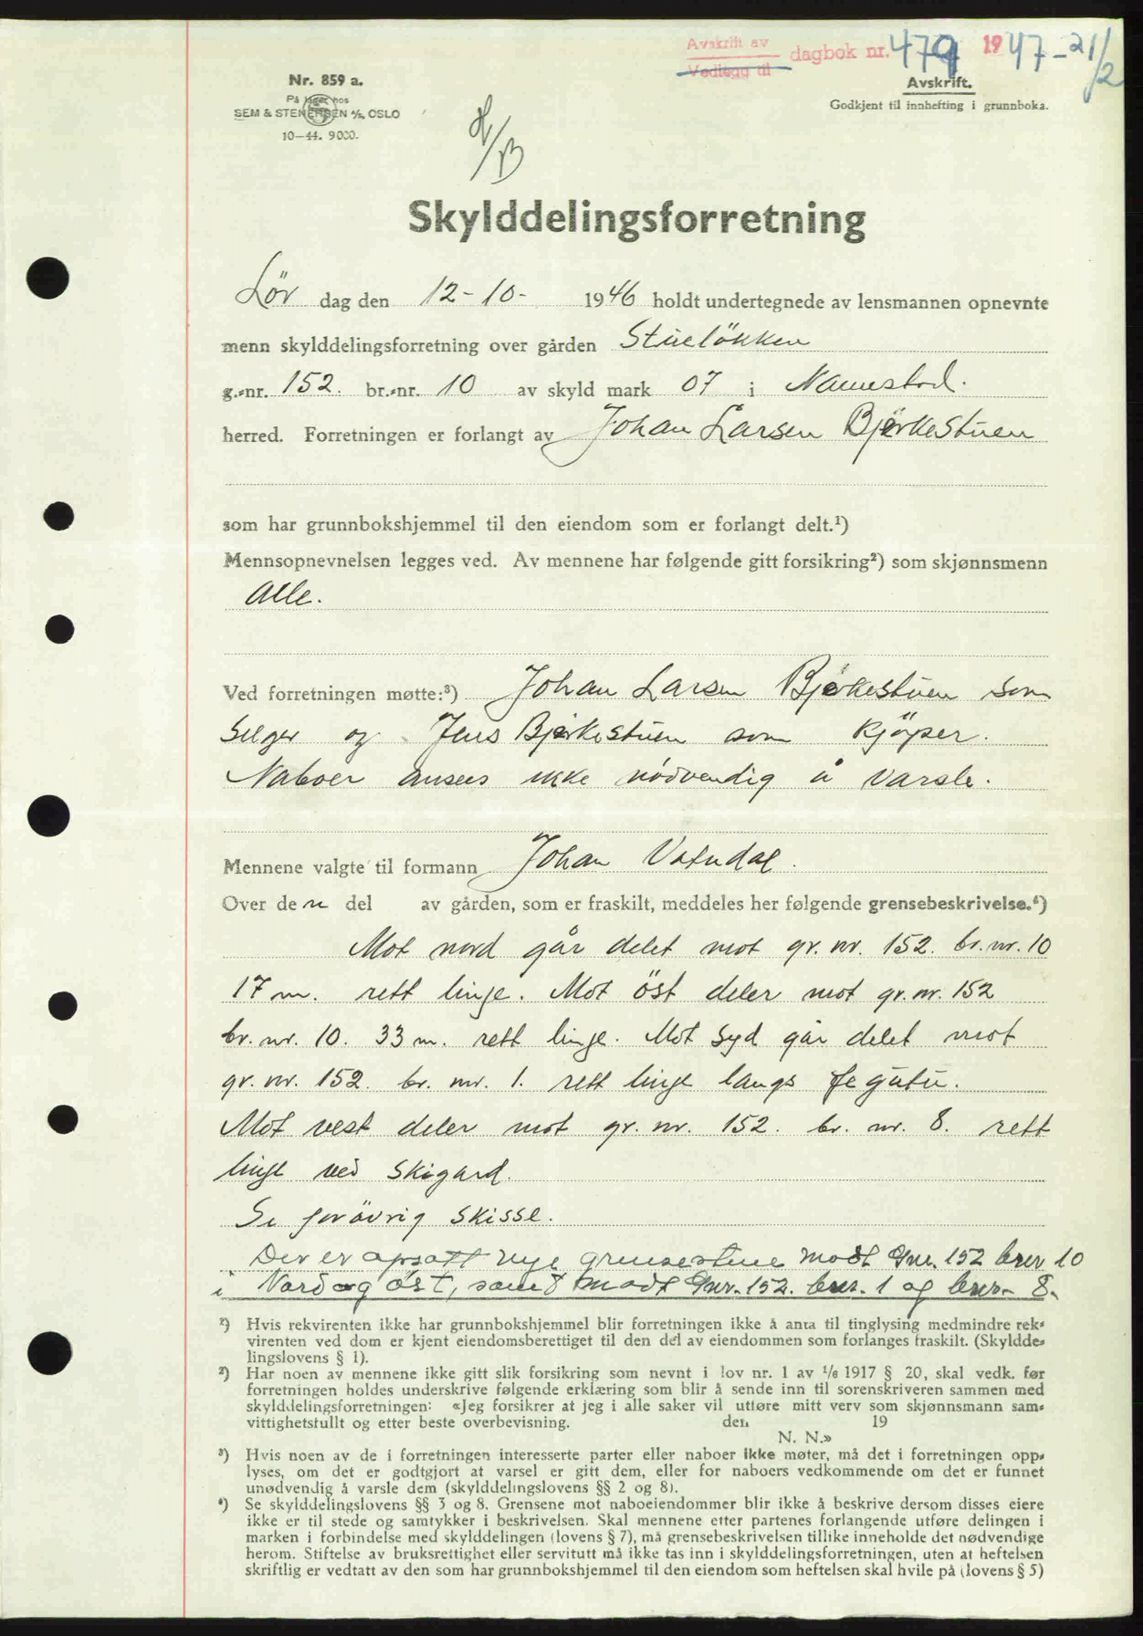 Avskrift av
Vedlegg til
dagbok nr. 479 1947-21/2
Avskrift.
Godkjent til innhefting i grunnboka.
Nr. 859 a.
På lager hos
SEM & STENERSEN A/S, OSLO
10-44. 9000.
Skylddelingsforretning
Lør dag den 12-10- 1946 holdt undertegnede av lensmannen opnevnte
menn skylddelingsforretning over gården Stueløkken
g.-nr. 152. br.-nr. 10 av skyld mark 07 i Nannestad.
herred. Forretningen er forlangt av Johan Larsen Bjørkestuen
som har grunnbokshjemmel til den eiendom som er forlangt delt.¹)
Mennsopnevnelsen legges ved. Av mennene har følgende gitt forsikring²) som skjønnsmenn
Alle.
Ved forretningen møtte:³) Johan Larsen Bjørkestuen som
Selger og Jens Bjørkestuen som kjöper.
Naboer ansees ikke nödvendig å varsle.
Mennene valgte til formann Johan Vatndal.
Over den del av gården, som er fraskilt, meddeles her følgende grensebeskrivelse.⁴)
Mot nord går delet mot gr. nr. 152. br. nr. 10
17 m. rett linje. Mot öst deler mot gr. nr. 152
br. nr. 10. 33 m. rett linje. Mot Syd går delet mot
gr. nr. 152. br. nr. 1. rett linje langs fegutu.
Mot vest deler mot gr. nr. 152. br. nr. 8. rett
linje ved Skigard.
Se forövrig Skisse.
Der er opsatt nye grensestene modt Gnr. 152 brnr 10
i Nord og öst, samt modt Gnr. 152. brnr. 1 og brnr. 8.
¹) Hvis rekvirenten ikke har grunnbokshjemmel blir forretningen ikke å anta til tinglysing medmindre rek-
virenten ved dom er kjent eiendomsberettiget til den del av eiendommen som forlanges fraskilt. (Skyldde-
lingslovens § 1).
²) Har noen av mennene ikke gitt slik forsikring som nevnt i lov nr. 1 av 1/6 1917 § 20, skal vedk. før
forretningen holdes underskrive følgende erklæring som blir å sende inn til sorenskriveren sammen med
skylddelingsforretningen: «Jeg forsikrer at jeg i alle saker vil utføre mitt verv som skjønnsmann sam-
vittighetsfullt og etter beste overbevisning. den 19
N. N.»
³) Hvis noen av de i forretningen interesserte parter eller naboer ikke møter, må det i forretningen opp-
lyses, om det er godtgjort at varsel er gitt dem, eller for naboers vedkommende om det er funnet
unødvendig å varsle dem (skylddelingslovens §§ 2 og 8).
⁴) Se skylddelingslovens §§ 3 og 8. Grensene mot naboeiendommer blir ikke å beskrive dersom disses eiere
ikke er til stede og samtykker i beskrivelsen. Skal mennene etter partenes forlangende utføre delingen i
marken i forbindelse med skylddelingen (lovens § 7), må grensebeskrivelsen tillike inneholde det nødvendige
herom. Stiftelse av bruksrettighet eller servitutt må ikke tas inn i skylddelingsforretningen, uten at heftelsen
skriftlig er vedtatt av den som har grunnbokshjemmel til den eiendom som heftelsen skal hvile på (lovens § 5)